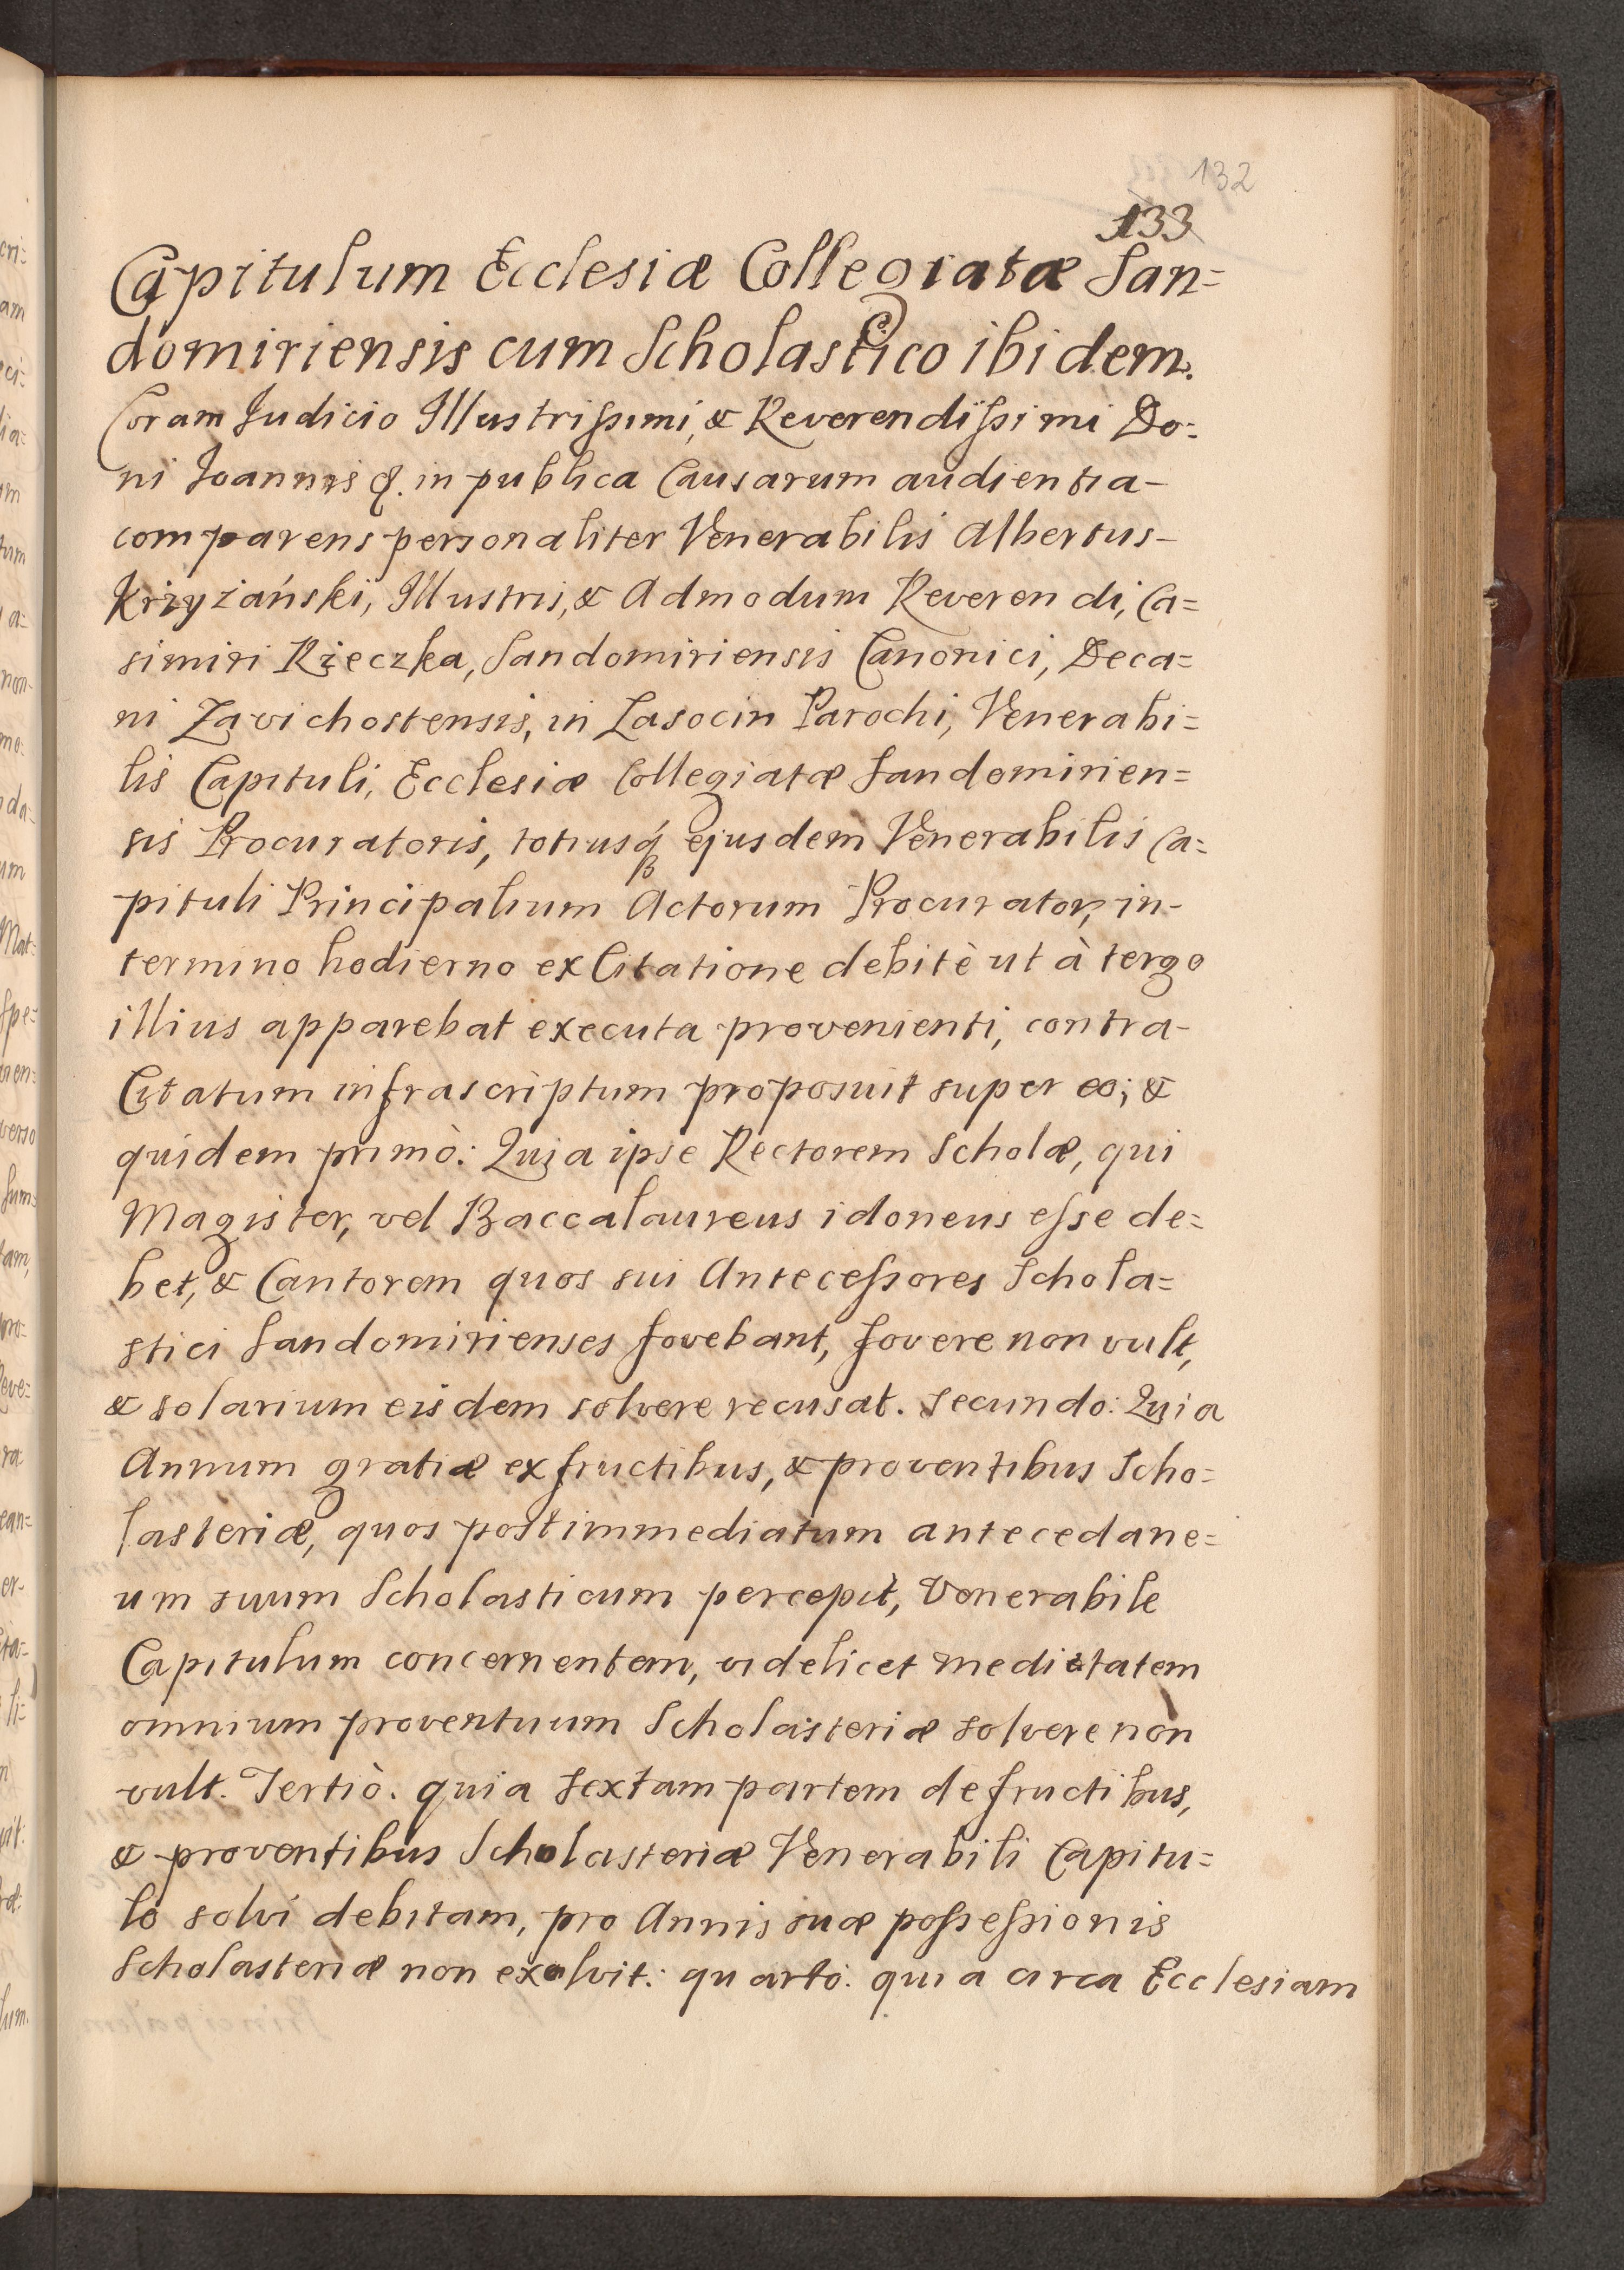 132
133
Capitulum Ecclesiæ Collegiatæ San=
domiriensis cum Scholastico ibidem.
Coram Judicio Illustrissimi, & Reverendissimi Do=
ni Joannis &. in publica Causarum audientia-
comparens personaliter Venerabilis Albertus-
Krzyżański, Illustris, & Admodum Reverendi, Ca=
simiri Rzeczka, Sandomiriensis Canonici, Deca=
ni Zavichostensis, in Lasocin Parochi, Venerabi=
lis Capituli, Ecclesiæ Collegiatæ Sandomirien=
sis Procuratoris, totiusq́ ejusdem Venerabilis Ca=
pituli Principalium Actorum Procurator, in-
termino hodierno ex Citatione debitè ut à tergo
illius apparebat executa provenienti, contra-
Citatum infrascriptum proposuit super eo; &
quidem primò: Quia ipse Rectorem Scholæ, qui
Magister, vel Baccalaureus idoneus esse de=
bet, & Cantorem quos sui Antecessores Schola=
stici Sandomirienses fovebant, fovere non vult,
& solarium eisdem solvere recusat. Secundo: Quia
Annum gratiæ ex fructibus, & proventibus Scho=
lasteriæ, quos post immediatum antecedane=
um suum Scholasticum percepit, Venerabile
Capitulum concernentem, videlicet medietatem
omnium proventuum Scholasteriæ solvere non
vult. Tertiò. quia sextam partem de fructibus,
& proventibus Scholasteriæ Venerabili Capitu=
lo solvi debitam, pro Annis suæ possessionis
Scholasteriæ non exolvit: quarto: quia circa Ecclesiam